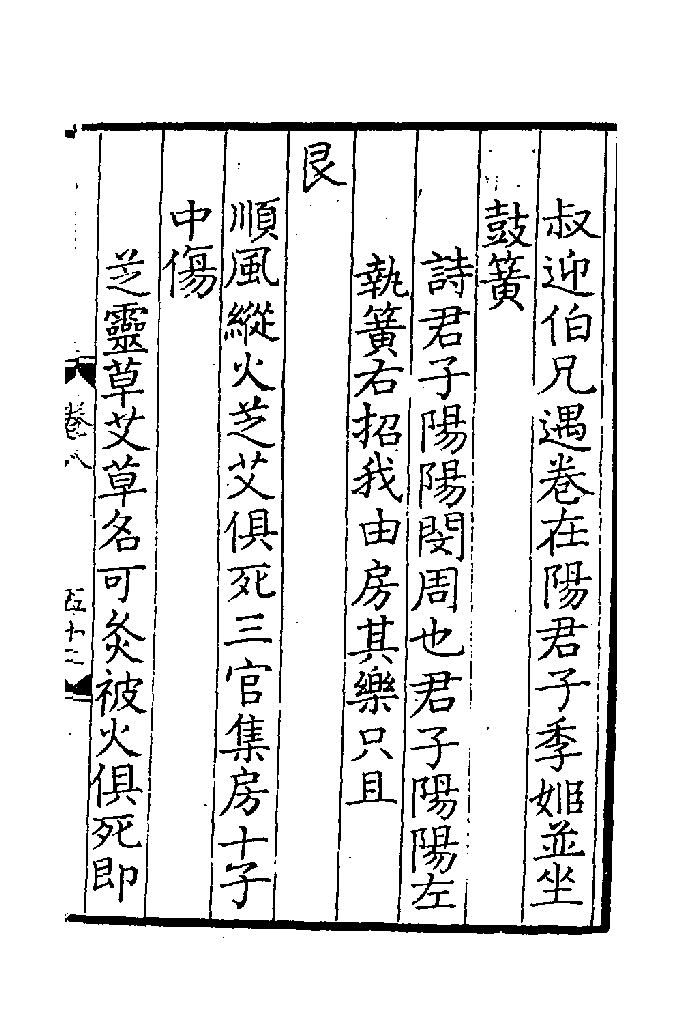 叔迎伯兄遇巷在陽君子季姬並坐
鼓簧
詩君子陽陽閔周也君子陽陽左
執簧右招我由房其樂只且
艮
順風縱火芝艾俱死三官集房十子
中傷
芝靈草艾草名可灸被火俱死即
卷八
五十二